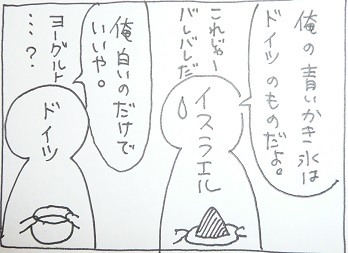 俺の青いかき氷は
ドイツのものだよ。
これじゃー
バレバレだ
イスラエル
俺白いのだけで
いいや。
ヨーグルト
…?
ドイツ